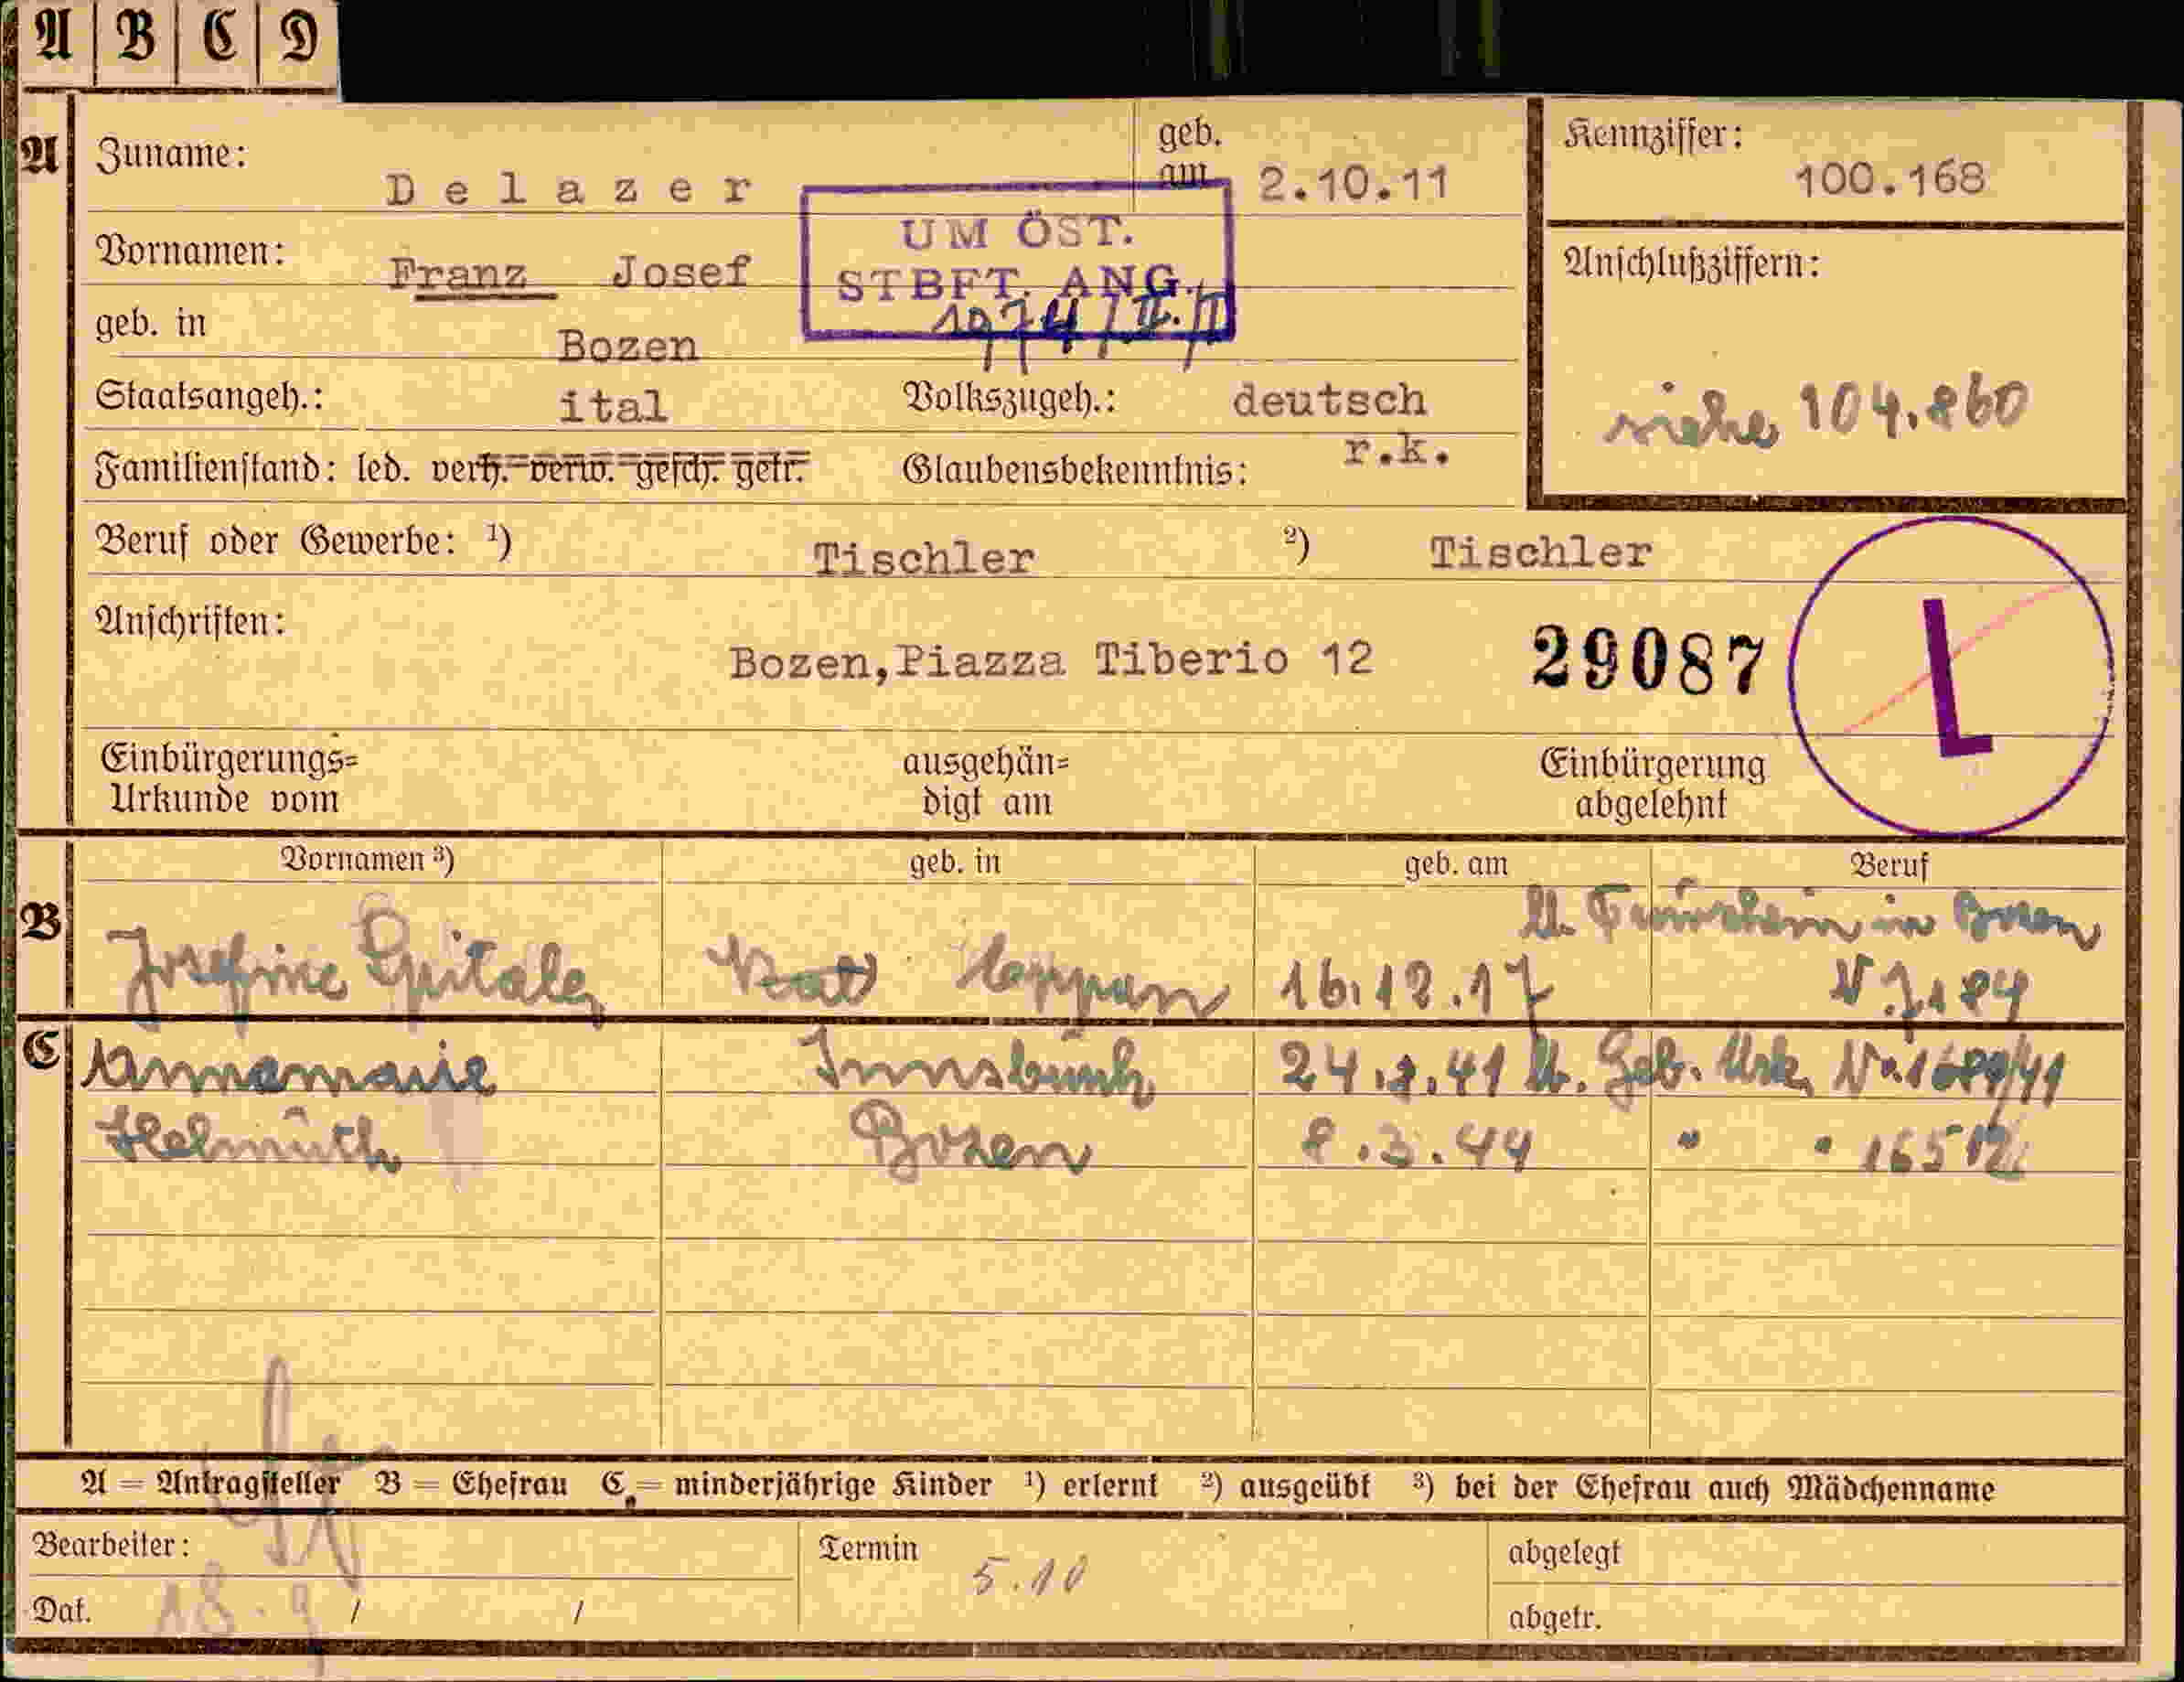 A B C D
A Zuname: Delazer geb. am 2.10.11
Kennziffer: 100.168
Vornamen: Franz Josef
UM ÖST.
STBFT. ANG.
geb. in Bozen
Anschlußziffern:
siehe 104.860
Staatsangeh.: ital Volkszugeh.: deutsch
Familienstand: led. verh. verw. gesch. getr. Glaubensbekenntnis: r.k.
Beruf oder Gewerbe: 1) Tischler 2) Tischler
Anschriften: Bozen,Piazza Tiberio 12 29087 L
Einbürgerungs= Urkunde vom ausgehän= digt am Einbürgerung abgelehnt
Vornamen 3) geb. in geb. am Beruf
in Bozen
B Josefine Spitaler Eppan 16.12.17
C Annemarie Innsbruck 24.8.41 Geb. Urk.
Helmuth Bozen 8.3.44 " "
A = Antragsteller B = Ehefrau C = minderjährige Kinder 1) erlernt 2) ausgeübt 3) bei der Ehefrau auch Mädchenname
Bearbeiter: Termin 5.10 abgelegt
Dat. 18.9 / / abgetr.